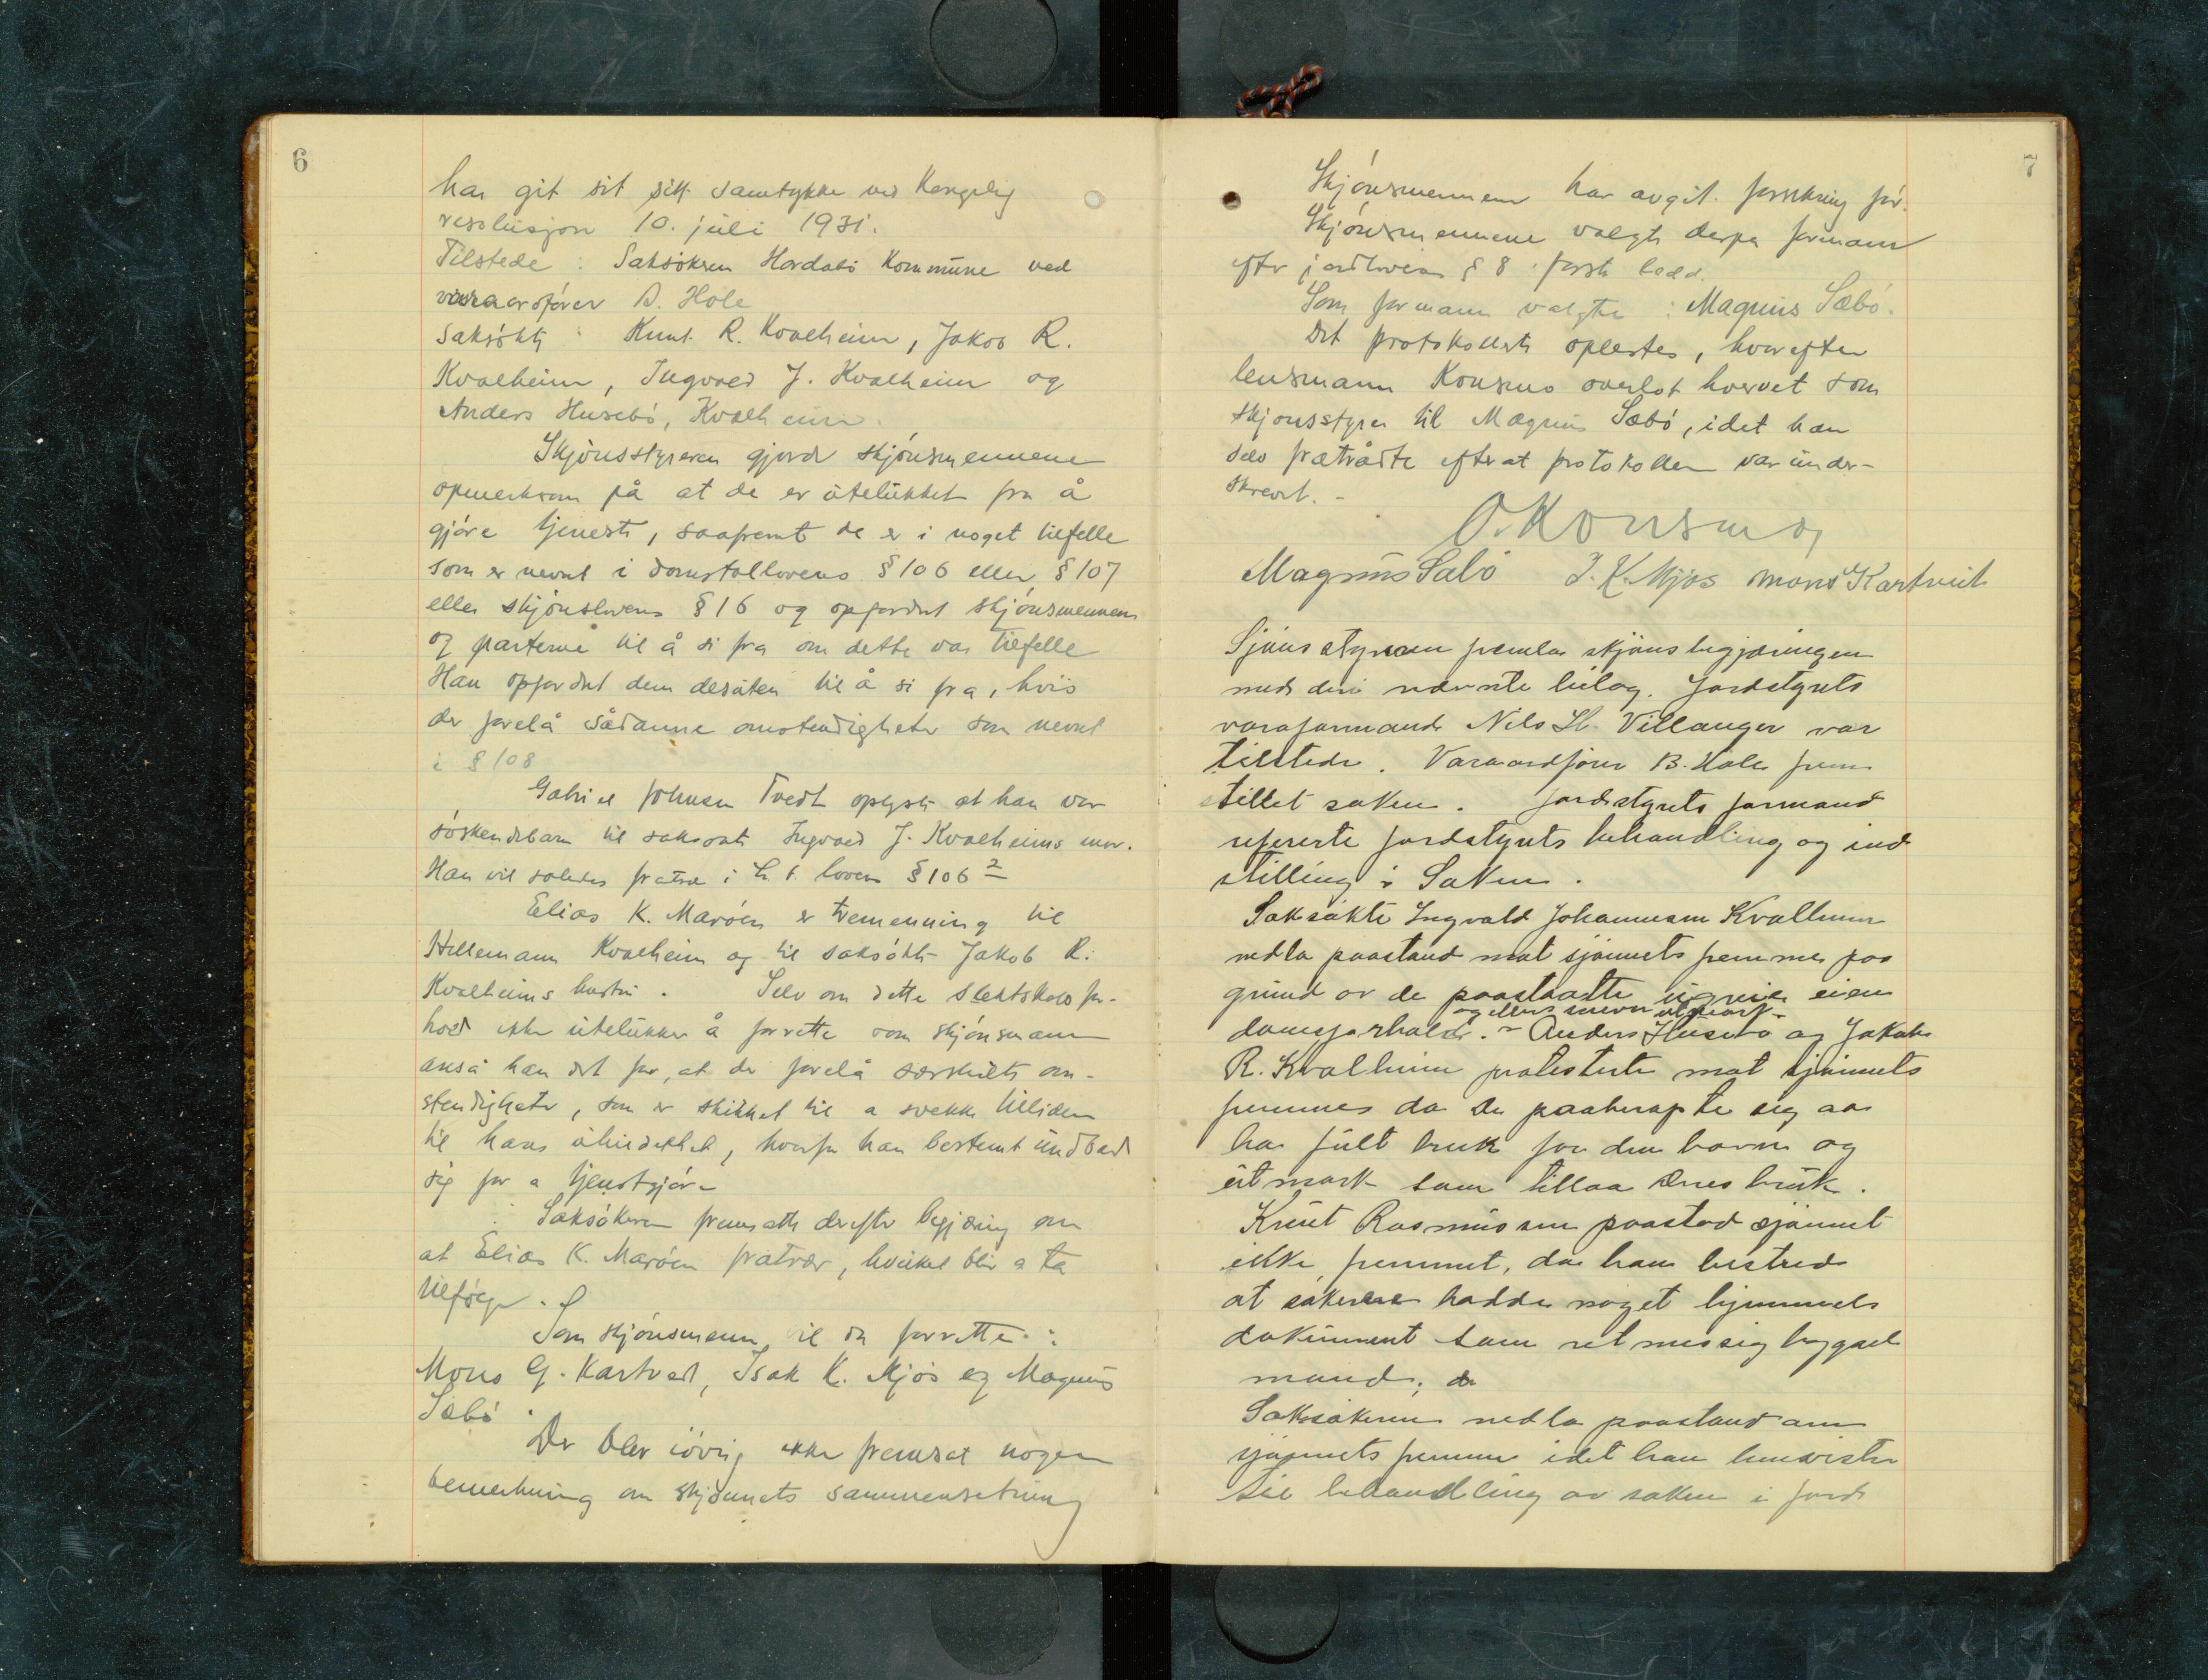 6
har git sit sitt samtykke ved Kongelig
resolusjon 10. juli 1931.
Tilstede: Saksøkeren Herdalø Kommune ved
varaordfører B. Hole
Saksøkte: Knut R. Kvalheim, Jakob R.
Kvalheim, Ingvald J. Kvalheim og
Anders Husebø, Kvalheim.
Skjønsstyreren gjorde skjønsmennene
opmerksom på at de er utelukket fra å
gjøre tjeneste, saafremt de er i noget tilfelle
som er nevnt i domstollovens § 106 eller § 107
eller skjønslovens § 16 og opfordret skjønsmennene
og parterne til å si fra om dette var tilfelle
Han opfordret dem desuten til å si fra, hvis
der forelå sådanne omstendigheter som nevnt
i § 108
Gabriel Johnsen Tvedt oplyste at han var
søskendebarn til saksøkte Ingvald J. Kvalheims mor.
Han vil således fratre i h. t. loven § 106 2
Elias K. Marøen er tremenning til
Hillemann Kvalheim og til saksøkte Jakob R.
Kvalheims hustru. Selv om dette slektskapsfor-
hold ikke utelukker å forrette som skjønsmann
anså han det for, at der forelå særskilte om-
stendigheter, som er skikket til a svekke tilliden
til hans uhildethet, hvorfor han bestemt undbad
sig for a tjenestgjøre
Saksøkeren fremsatte derefter begjæring om
at Elias K. Marøen fratrær, hvilket blir a ta
tilfølge.
Som skjønsmenn vil da forrette:
Mons G. Kartveit, Isak K. Mjøs og Magnus
Sæbø.
Der blev iøvrig ikke fremsat nogen
bemerkning om skjønnets sammensetning
7
Skjønsmennene har avgit forsikring før.
Skjønsmennene valgte derpa formann
efter jordlovens § 8 første ledd.
Som formann valgtes: Magnus Sæbø.
Det protokollerte oplestes, hvorefter
lensmann Konsmo overlot hvervet som
skjønsstyrer til Magnus Sæbø, idet han
selv fratrådte efterat protokollen var under-
skrevet. -
O. Konsmo
Magnus Sæbø I. K. Mjøs Mons Kartveit
Sjønsstyreren fremla skjønsbegjæringen
med deri nævnte bilag. Jordstyrets
varaformand Nils H. Villanger var
tilstede. Varaordfører B. Hole frem
stillet saken. Jordstyrets formand
refererte jordstyrets behandling og ind
stilling i Saken.
Saksøkte Ingvald Johannesen Kvalheim
nedla paastand mot sjønnets fremme paa
grund av de paastaatte ugreie eien
og ellers snever utmark-
domsforholde. - Anders Husebø og Jakob
R. Kvalheim protesterte mot sjønnets
fremmes da de paaberopte sig aa
ha fult bruk for den havn og
utmark som tillaa deres bruk.
Knut Rasmussen paastod sjønnet
ikke fremmet, da han bestred
at søkerne hadde noget hjemmels
dokument som retmessig bygsel
mand. da
Saksøkeren nedla paastand om
sjønnets fremme idet han henviste
til behandling av saken i jord